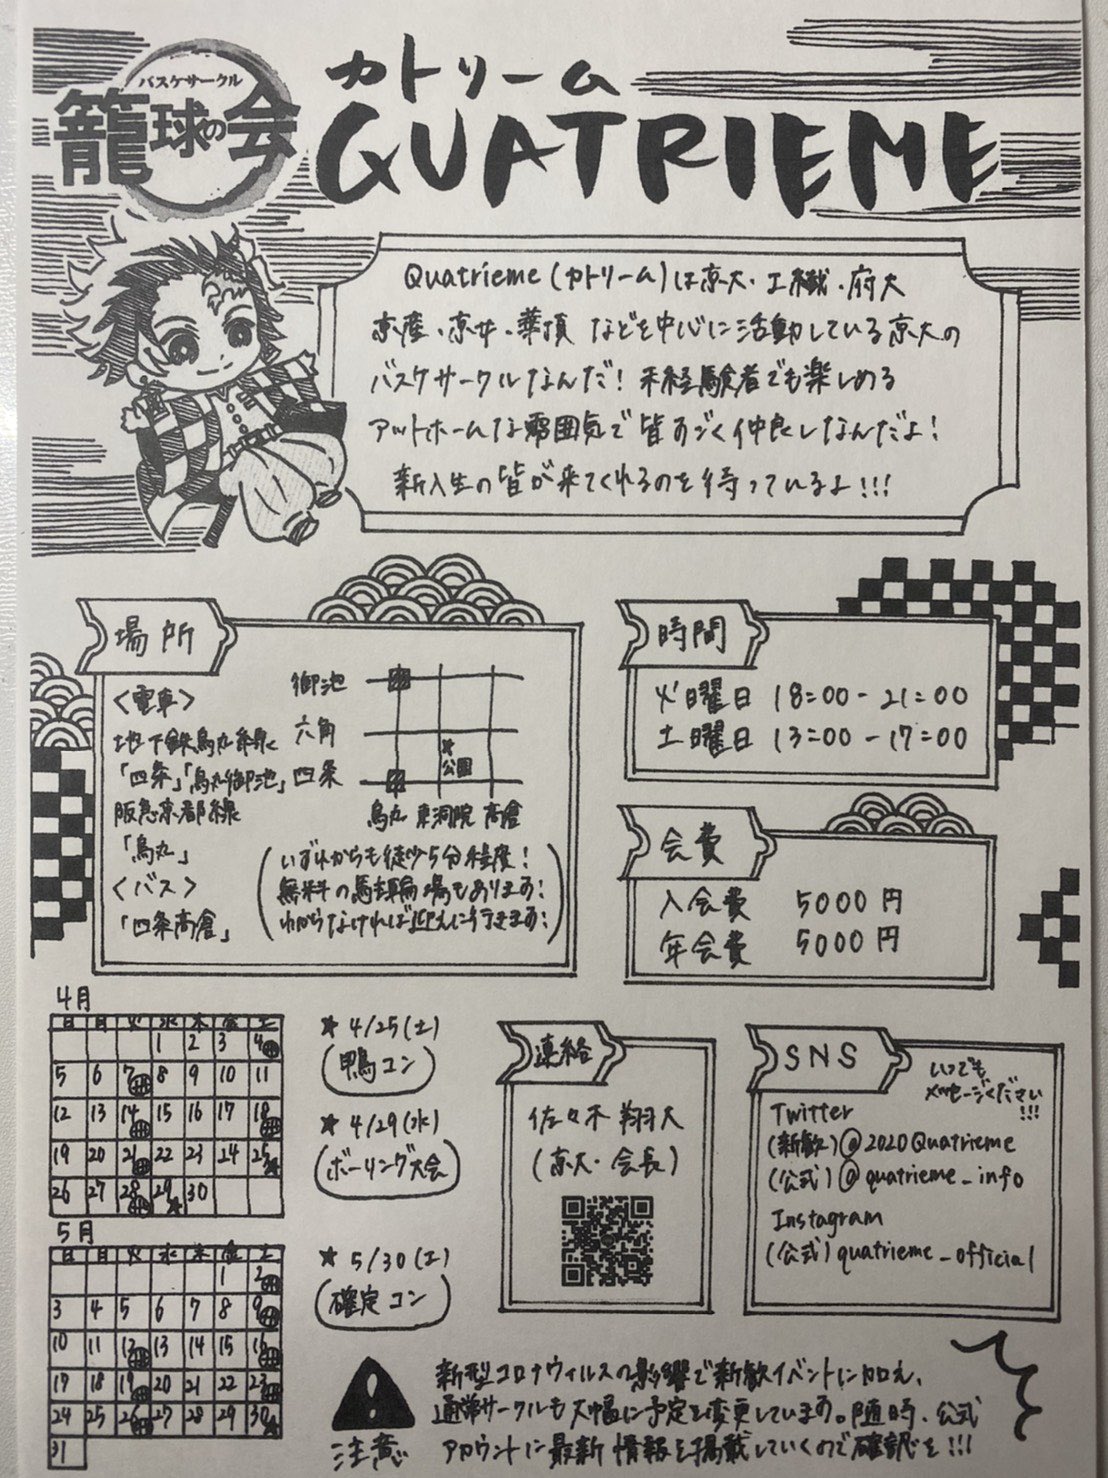 バスケサークル
籠球の会
カトリーム
QUATRIEME
Quatrieme (カトリーム)は京大・工繊・府大
京産・京女・華頂 などを中心に活動している京大の
バスケサークルなんだ! 未経験者でも楽しめる
アットホームな雰囲気で皆すごく仲良しなんだよ!
新入生の皆が来てくれるのを待っているよ!!!
場所
<電車>
地下鉄烏丸線
「四条」「烏丸御池」
阪急京都線
「烏丸」
<バス>
「四条高倉」
御池
六角
四条
公園
烏丸 東洞院 高倉
(いずれからも徒歩5分程度!
無料の駐輪場もあります!
わからなければ迎えに行きます!)
時間
火曜日 18:00-21:00
土曜日 13:00-17:00
会費
入会費 5000円
年会費 5000円
4月
日 月 火 水 木 金 土
1 2 3 4
5 6 7 8 9 10 11
12 13 14 15 16 17 18
19 20 21 22 23 24 25
26 27 28 29 30
5月
日 月 火 水 木 金 土
1 2
3 4 5 6 7 8 9
10 11 12 13 14 15 16
17 18 19 20 21 22 23
24 25 26 27 28 29 30
31
★ 4/25(土)
(鴨コン)
★ 4/29(水)
(ボーリング大会)
★ 5/30(土)
(確定コン)
連絡
佐々木 翔大
(京大・会長)
SNS
いつでも
メッセージください
!!!
Twitter
(新歓)@2020Quatrieme
(公式)@quatrieme_info
Instagram
(公式)quatrieme_official
注意
新型コロナウィルスの影響で新歓イベントに加え、
通常サークルも大幅に予定を変更しています。随時、公式
アカウントに最新情報を掲載していくので確認を!!!